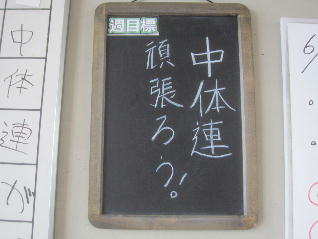 週目標
中体連
頑張ろう!。
中体連が
6/